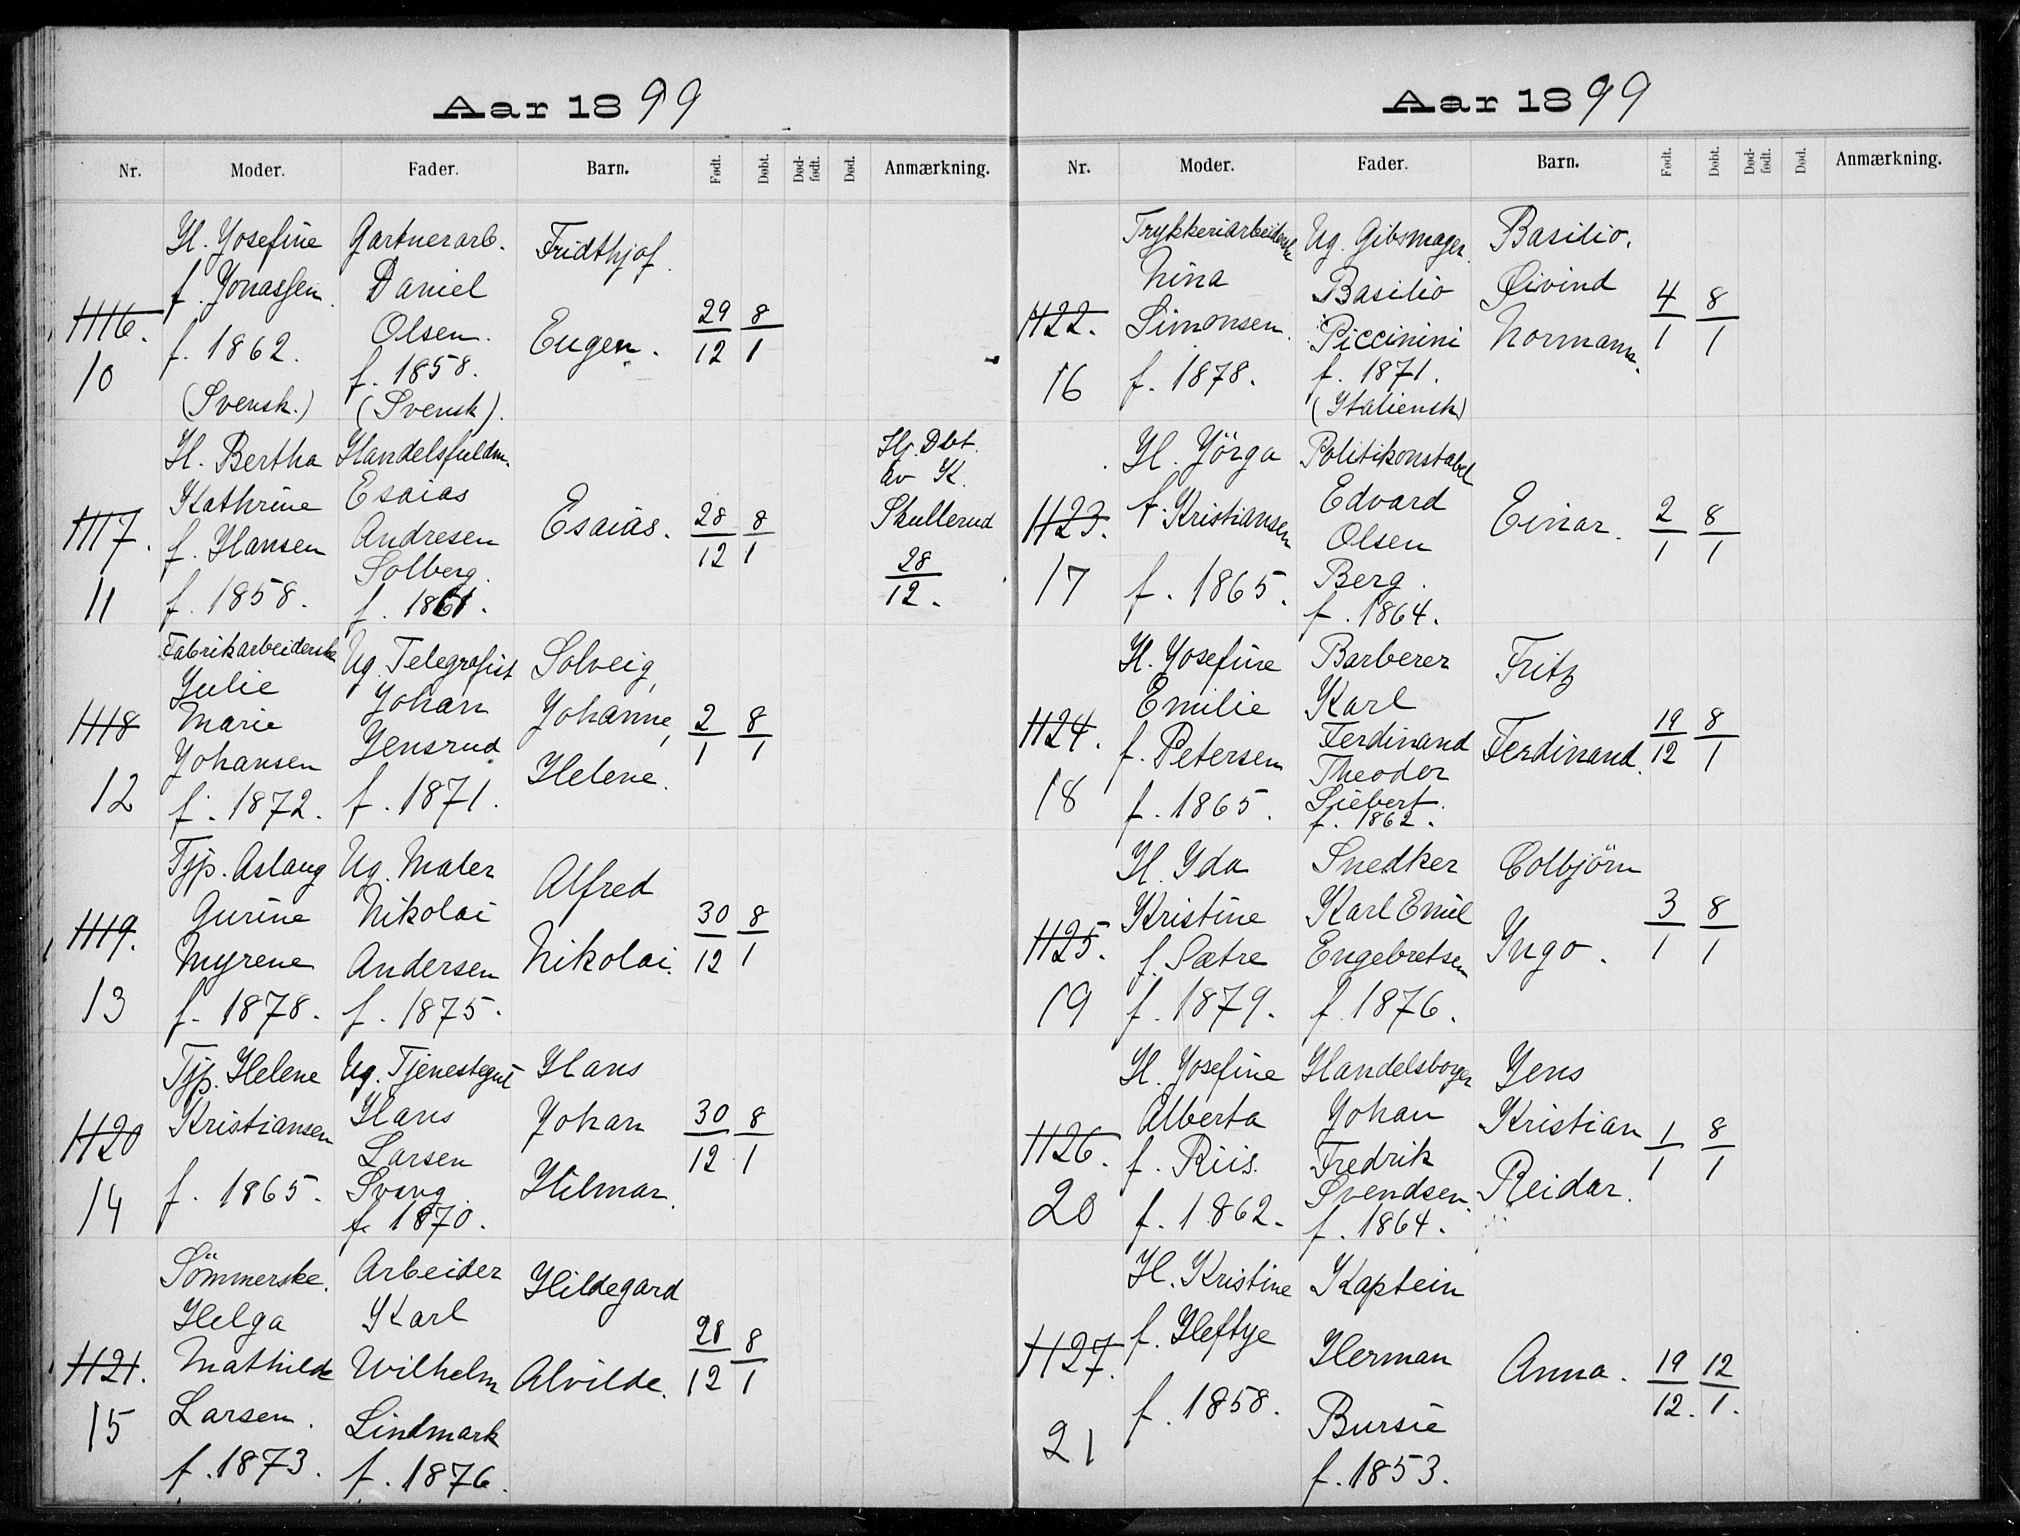 Aar 1899
Nr. Moder. Fader. Barn. Født. Døbt. Død-født. Død. Anmærkning.
1116.
10
H. Josefine
f. Jonassen
f. 1862.
(Svensk.)
Gartnerarb.
Daniel
Olsen.
f. 1858.
(Svensk).
Fridthjof
Eugen.
29/12 8/1
1117.
11
H. Bertha
Kathrine
f. Hansen
f. 1858.
Handelsfuldm.
Esaias
Andresen
Solberg.
f. 1861.
Esaias.
28/12 8/1
Hj. Dbt.
av K.
Skullerud
28/12.
1118
12
Fabrikarbeiderske
Julie
Marie
Johansen
f. 1872.
Ug. Telegrafist
Johan
Jensrud
f. 1871.
Solveig,
Johanne,
Helene.
2/1 8/1
1119.
13
Tjp. Aslaug
Gurine
Myrene
f. 1878.
Ug. Maler
Nikolai
Andersen
f. 1875.
Alfred
Nikolai.
30/12 8/1
1120
14
Tjp. Helene
Kristiansen
f. 1865.
Ug. Tjenestegut
Hans
Larsen
Svang.
f. 1870.
Hans
Johan
Hilmar.
30/12 8/1
1121.
15
Sömmerske.
Helga
Mathilde
Larsen.
f. 1873.
Arbeider
Karl
Wilhelm
Lindmark
f. 1876.
Hildegard
Alvilde.
28/12 8/1
Aar 1899
Nr. Moder. Fader. Barn. Født. Døbt. Død-født. Død. Anmærkning.
1122.
16
Trykkeriarbeiderske
Nina
Simonsen.
f. 1878.
Ug. Gibsmager.
Basilio
Piccinini
f. 1871.
(Italiensk)
Basilio.
Øivind
Normann.
4/1 8/1
1123.
17
H. Jörga
f. Kristiansen
f. 1865.
Politikonstabel
Edvard
Olsen
Berg.
f. 1864.
Einar.
2/1 8/1
1124.
18
H. Josefine
Emilie
f. Petersen
f. 1865.
Barberer
Karl
Ferdinand
Theodor
Siebert.
f. 1862.
Fritz
Ferdinand.
19/12 8/1
1125.
19
H. Ida
Kristine
f. Sætre
f. 1879.
Snedker
Karl Emil
Engebretsen
f. 1876.
Colbjörn
Ingo.
3/1 8/1
1126.
20
H. Josefine
Alberta
f. Riis.
f. 1862.
Handelsborger
Johan
Fredrik
Svendsen.
f. 1864.
Jens
Kristian
Reidar.
1/1 8/1
1127.
21
H. Kristine
f. Heftye
f. 1858.
Kaptein
Herman
Bursie
f. 1853.
Anna.
19/12. 12/1.